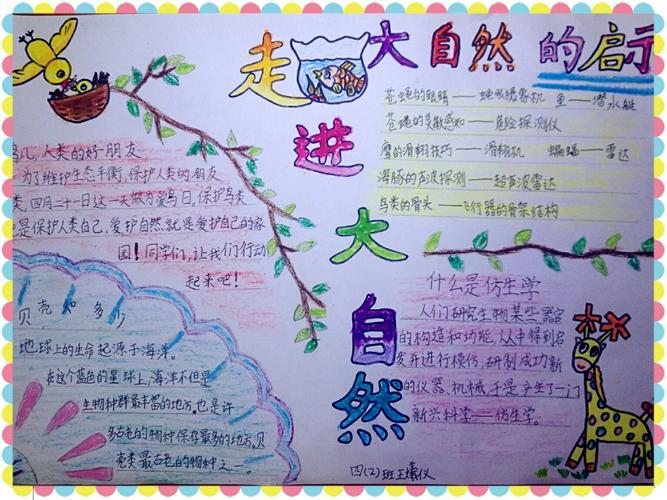 走进大自然
大自然的启示
苍蝇的眼睛——蝇眼摄象机 鱼——潜水艇
苍蝇的灵敏感知——危险探测仪
鹰的滑翔技巧——滑翔机 蝙蝠——雷达
海豚的声波探测——超声波雷达
鸟类的骨头——飞行器的骨架结构
鸟儿,人类的好朋友
为了维护生态平衡,保护人类的朋友
类,四月二十一日这一天做为爱鸟日,保护鸟类
是保护人类自己,爱护自然就是爱护自己的家
园!同学们,让我们行动
起来吧!
贝壳知多少
地球上的生命起源于海洋。
在这个蓝色的星球上,海洋不但是
生物种群最丰富的地方,也是许
多古老的物种保存最多的地方。贝
壳类最古老的物种之一
什么是仿生学
人们研究生物某些器官
的构造和功能,从中得到启
发并进行模仿,研制成功新
的仪器、机械,于是产生了一门
新兴科学——仿生学。
四(2)班王仪